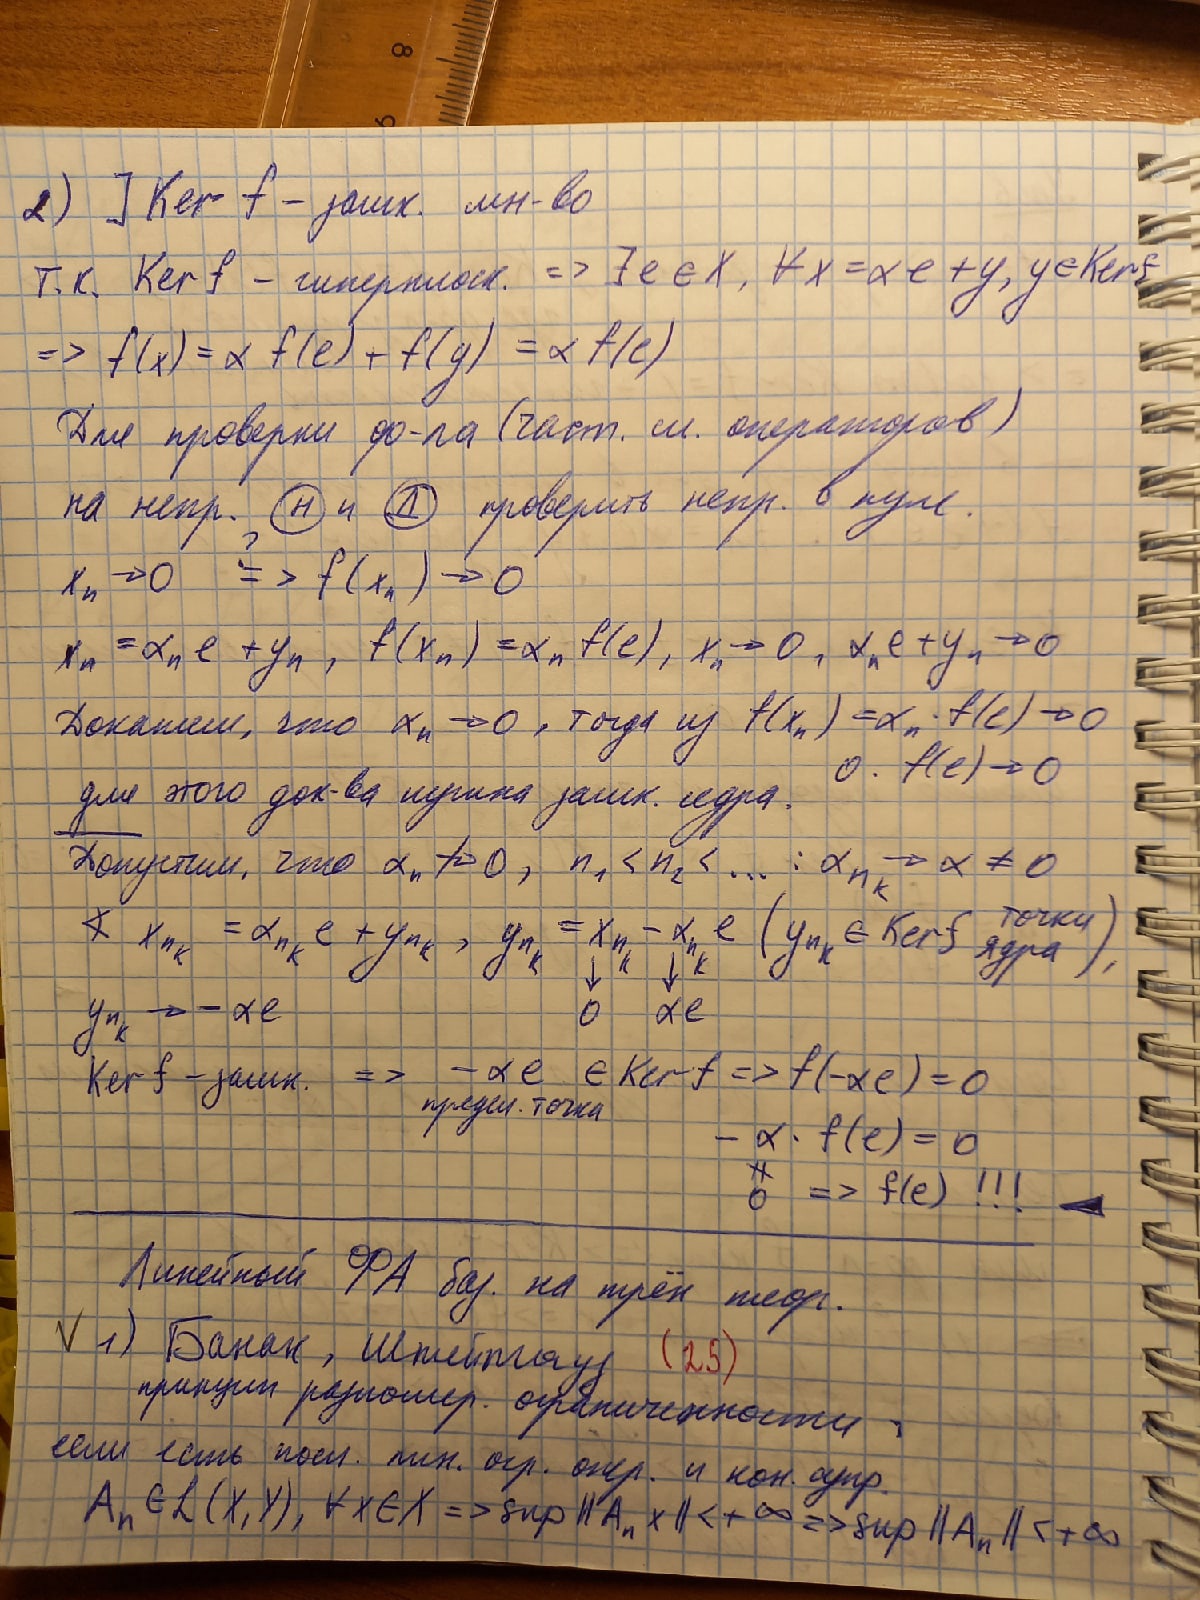 8
9
2) ] Ker f – замк. мн-во
т.к. Ker f – гиперплоск. => ∃ e ∈ X, ∀ x = αe + y, y ∈ Ker f
=> f(x) = α f(e) + f(y) = α f(e)
Для проверки ф-ла (част. сл. операторов)
на непр. Ⓗ и Ⓓ проверить непр. в нуле.
xₙ → 0 ?=> f(xₙ) → 0
xₙ = αₙe + yₙ, f(xₙ) = αₙ f(e), xₙ → 0, αₙe + yₙ → 0
Докажем, что αₙ → 0, тогда из f(xₙ) = αₙ · f(e) → 0
0 · f(e) → 0
для этого док-ва нужна замк. ядра.
Допустим, что αₙ ↛ 0, n₁ < n₂ < ... : α_{n_k} → α ≠ 0
∢ x_{n_k} = α_{n_k} e + y_{n_k}, y_{n_k} = x_{n_k} – α_{n_k} e (y_{n_k} ∈ Ker f точки ядра),
↓ ↓
y_{n_k} → – αe 0 αe
Ker f – замк. => – αe ∈ Ker f => f(-αe) = 0
предел. точка
– α · f(e) = 0
≠
0 => f(e) !!! ◄
Линейный ФА баз. на трёх теор.
√ 1) Банах, Штейнгауз (25)
принцип равномер. ограниченности,
если есть посл. лин. огр. опер. и кон. супр.
Aₙ ∈ L(X,Y), ∀ x ∈ X => sup ‖Aₙ x‖ < + ∞ => sup ‖Aₙ‖ < + ∞